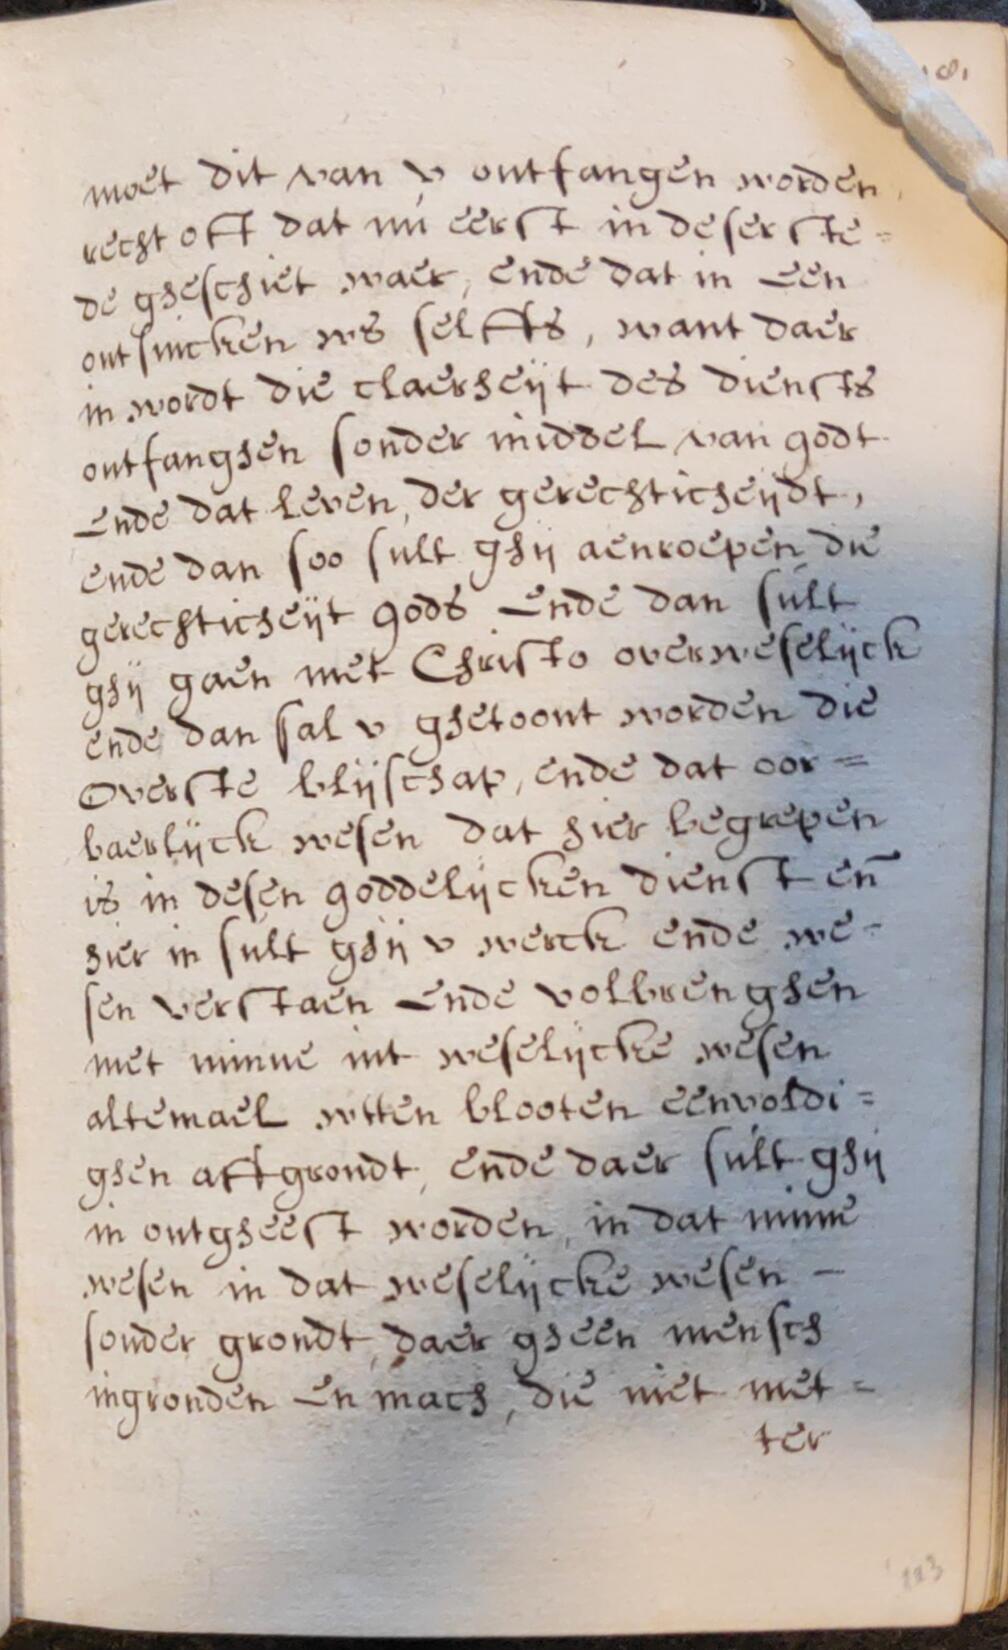 moet dit van v ontfangen worden,
recht oft dat nú eerst in deser ste=
de gheschiet waer, ende dat in Een
ontsincken ws selffs, want daer
in wordt die claerheijt des diensts
ontfanghen sonder middel van godt
Ende dat leven, der gerechticheijdt,
ende dan soo sult ghij aenroepen die
gerechticheijt gods Ende dan súlt
ghij gaen met Christo overweselijck
ende dan sal v ghetoont worden die
Overste blijschap, ende dat oor=
baerlijck wesen dat hier begrepen
is in desen goddelijcken dienst en̄
hier in sult ghij v werck ende we-
sen verstaen Ende volbrenghen
met minne int weselijcke wesen
altemael wtten blooten eenvoldi=
ghen affgrondt, ende daer súlt ghij
in ontgheest worden, in dat minne
wesen in dat weselijcke wesen -
sonder grondt, daer gheen mensch
ingronden En mach, die niet met=
ter
113